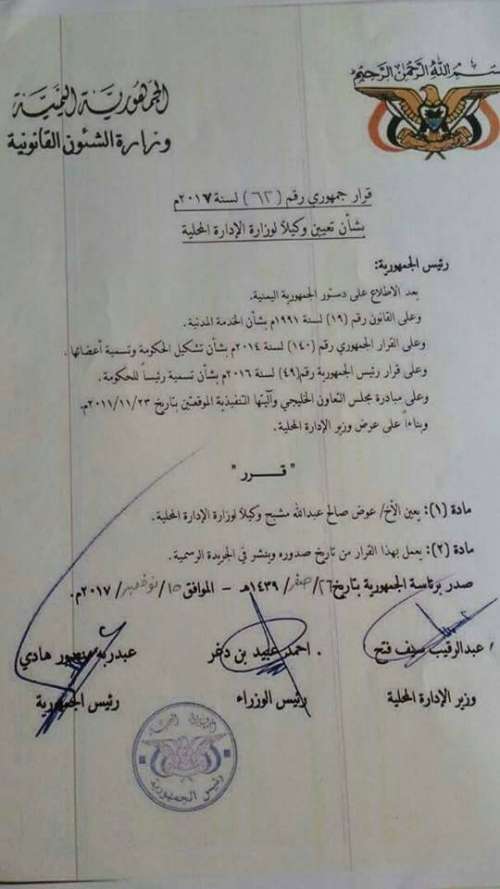 بسم الله الرحمن الرحيم
الجمهورية اليمنية
وزارة الشئون القانونية
قرار جمهوري رقم (٦٢) لسنة ٢٠١٧م
بشأن تعيين وكيلاً لوزارة الإدارة المحلية
رئيس الجمهورية:
بعد الاطلاع على دستور الجمهورية اليمنية.
وعلى القانون رقم (١٩) لسنة ١٩٩١م بشأن الخدمة المدنية.
وعلى القرار الجمهوري رقم (١٤٠) لسنة ٢٠١٤م بشأن تشكيل الحكومة وتسمية أعضائها.
وعلى قرار رئيس الجمهورية رقم(٤٩) لسنة ٢٠١٦م بشأن تسمية رئيساً للحكومة.
وعلى مبادرة مجلس التعاون الخليجي وآليتها التنفيذية الموقعتين بتاريخ ٢٠١١/١١/٢٣م.
وبناءاً على عرض وزير الإدارة المحلية.
" قـرر "
مادة (١): يعين الأخ/ عوض صالح عبدالله مشبح وكيلاً لوزارة الإدارة المحلية.
مادة (٢): يعمل بهذا القرار من تاريخ صدوره وينشر في الجريدة الرسمية.
صدر برئاسة الجمهورية بتاريخ ٢٦/ صفر/ ١٤٣٩هـ – الموافق ١٥/ نوفمبر/ ٢٠١٧م.
عبدالرقيب سيف فتح
احمد عبيد بن دغر
عبدربه منصور هادي
وزير الإدارة المحلية
رئيس الوزراء
رئيس الجمهورية
الجمهورية اليمنية
رئيس الجمهورية